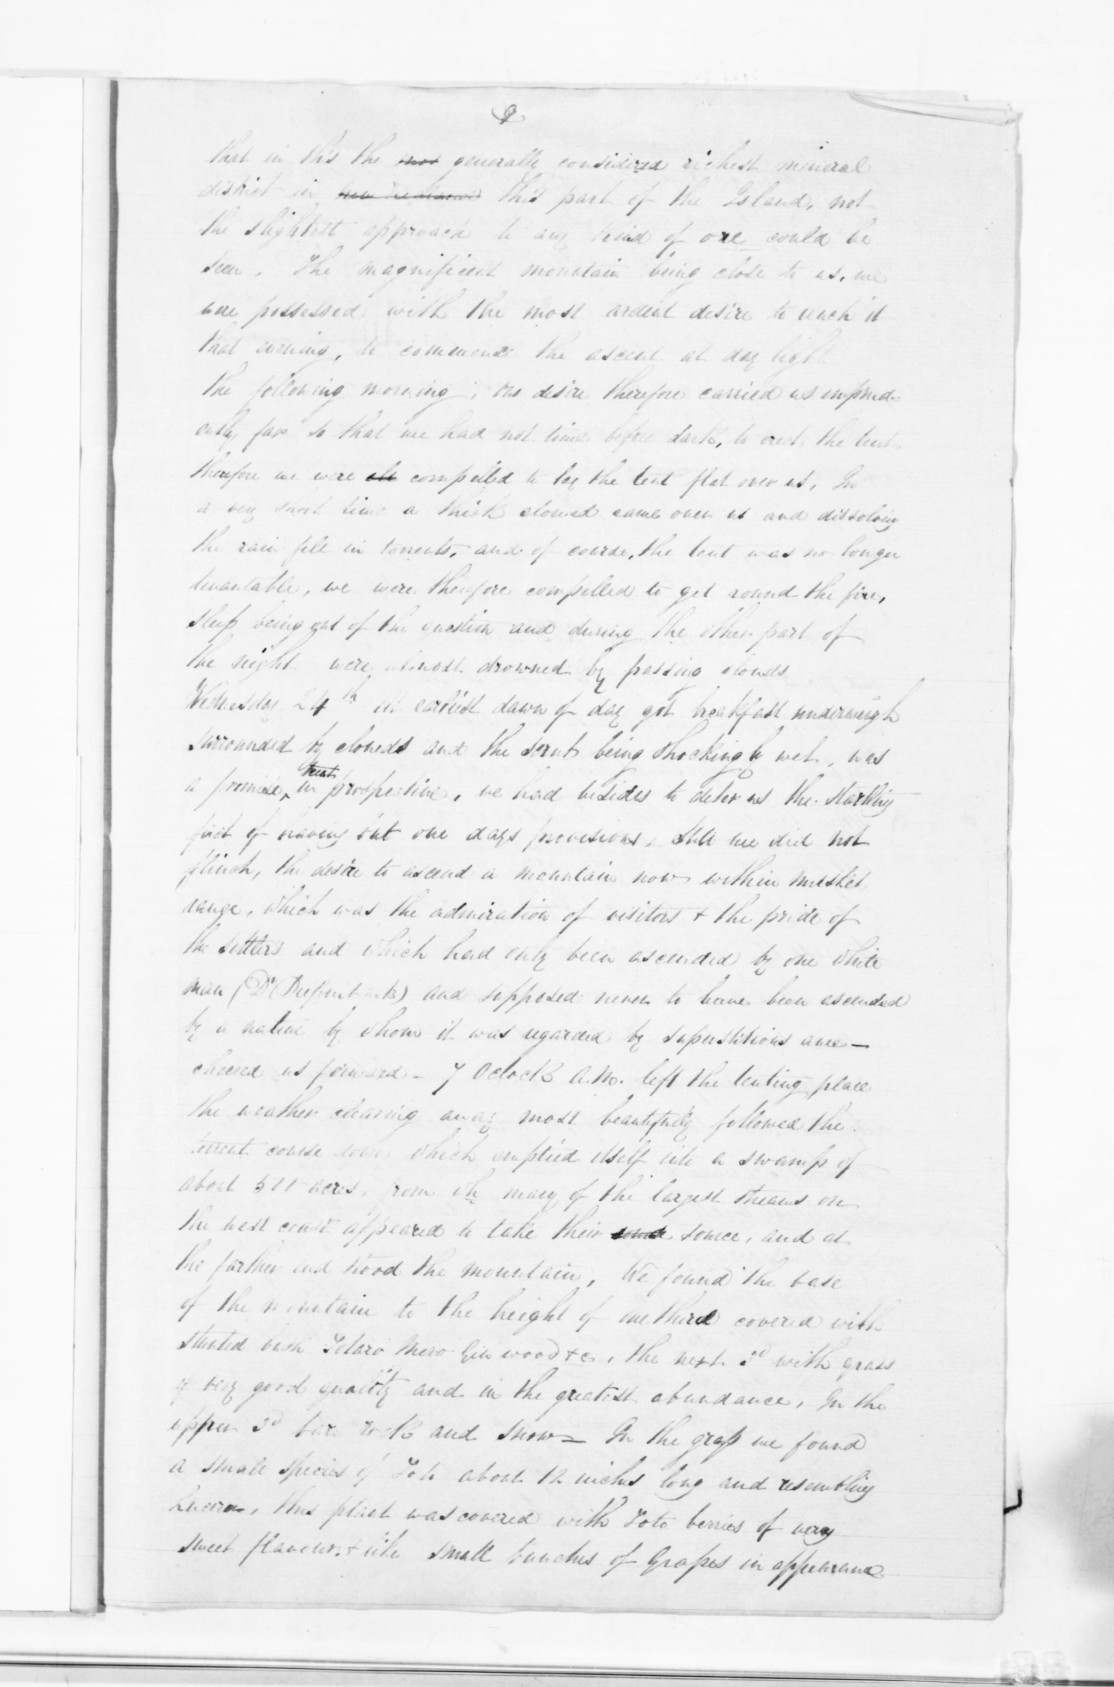 9
that in this the most generally considered richest mineral
district in New Zealand this part of the Island, not
the slightest approach to any kind of ore could be
seen. The magnificent mountain being close to us, we
were possessed with the most ardent desire to reach it
that evening, to commence the ascent at day light
the following morning; our desire therefore carried us imprud-
ently far so that we had not time before dark, to erect the tent
therefore we were compelled to lay the tent flat over us. In
a very short time a thick cloud came over us and dissolving
the rain fell in torrents, and of course, the tent was no longer
tenantable, we were therefore compelled to get round the fire,
sleep being out of the question and during the other part of
the night were almost drowned by passing clouds
Wednesday 24th At earliest dawn of day got breakfast underweigh
surrounded by clouds and the scrub being shockingly wet, was
a promise, in prospective, we had besides to deter us the startling
fact of having but one days provisions, still we did not
flinch, the desire to ascend a mountain now within musket
range, which was the admiration of visitors & the pride of
the settlers and which had only been ascended by one white
man (Dr Dieffenbach) and supposed never to have been ascended
by a native by whom it was regarded by superstitious awe —
cheered us forward – 7 Oclock A.M. left the tenting place
the weather clearing away most beautifully followed the
torrent course down which emptied itself into a swamp of
about 500 acres, from wh many of the largest streams on
the west coast appeared to take their source, and at
the farther end stood the mountain, We found the base
of the mountain to the height of one third covered with
stunted bush Totara Mero Gin wood &c, the next 3d with grass
of very good quality and in the greatest abundance, In the
upper 3d bare rock and snow – In the grass we found
a small species of Toto about 12 inches long and resembling
Lucern, this plant was covered with Toto berries of very
sweet flavour, & like small bunches of Grapes in appearance